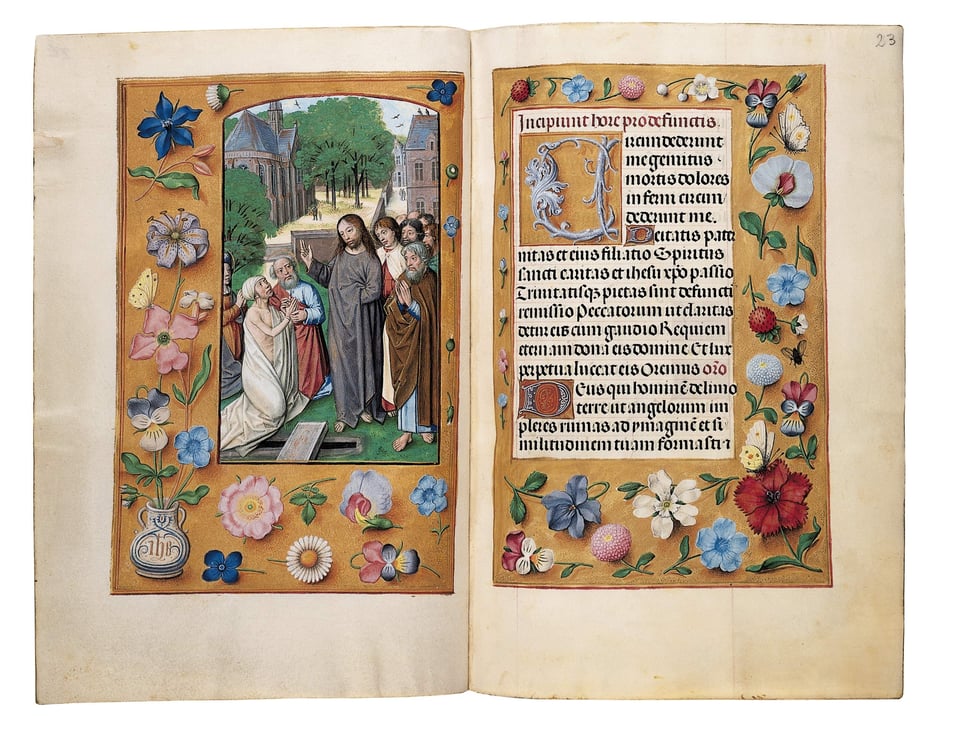 ihs
23
Incipiunt hore pro defunctis.
Circundederunt
me gemitus ·
mortis dolores
inferni circum
dederunt me.
Deitatis pater
nitas et eius filiatio Spiritus
sancti caritas et ihesu xpo passio
Trinitatisqz pietas sint defuncti
remissio Peccatorum ut claritas
detur eis cum gaudio Requiem
eternam dona eis domine Et lux
perpetua luceat eis Oremus oro
Deus qui hominē de limo
terre ut angelorum im
pleres ruinas ad ymaginē et si
militudinem tuam formasti